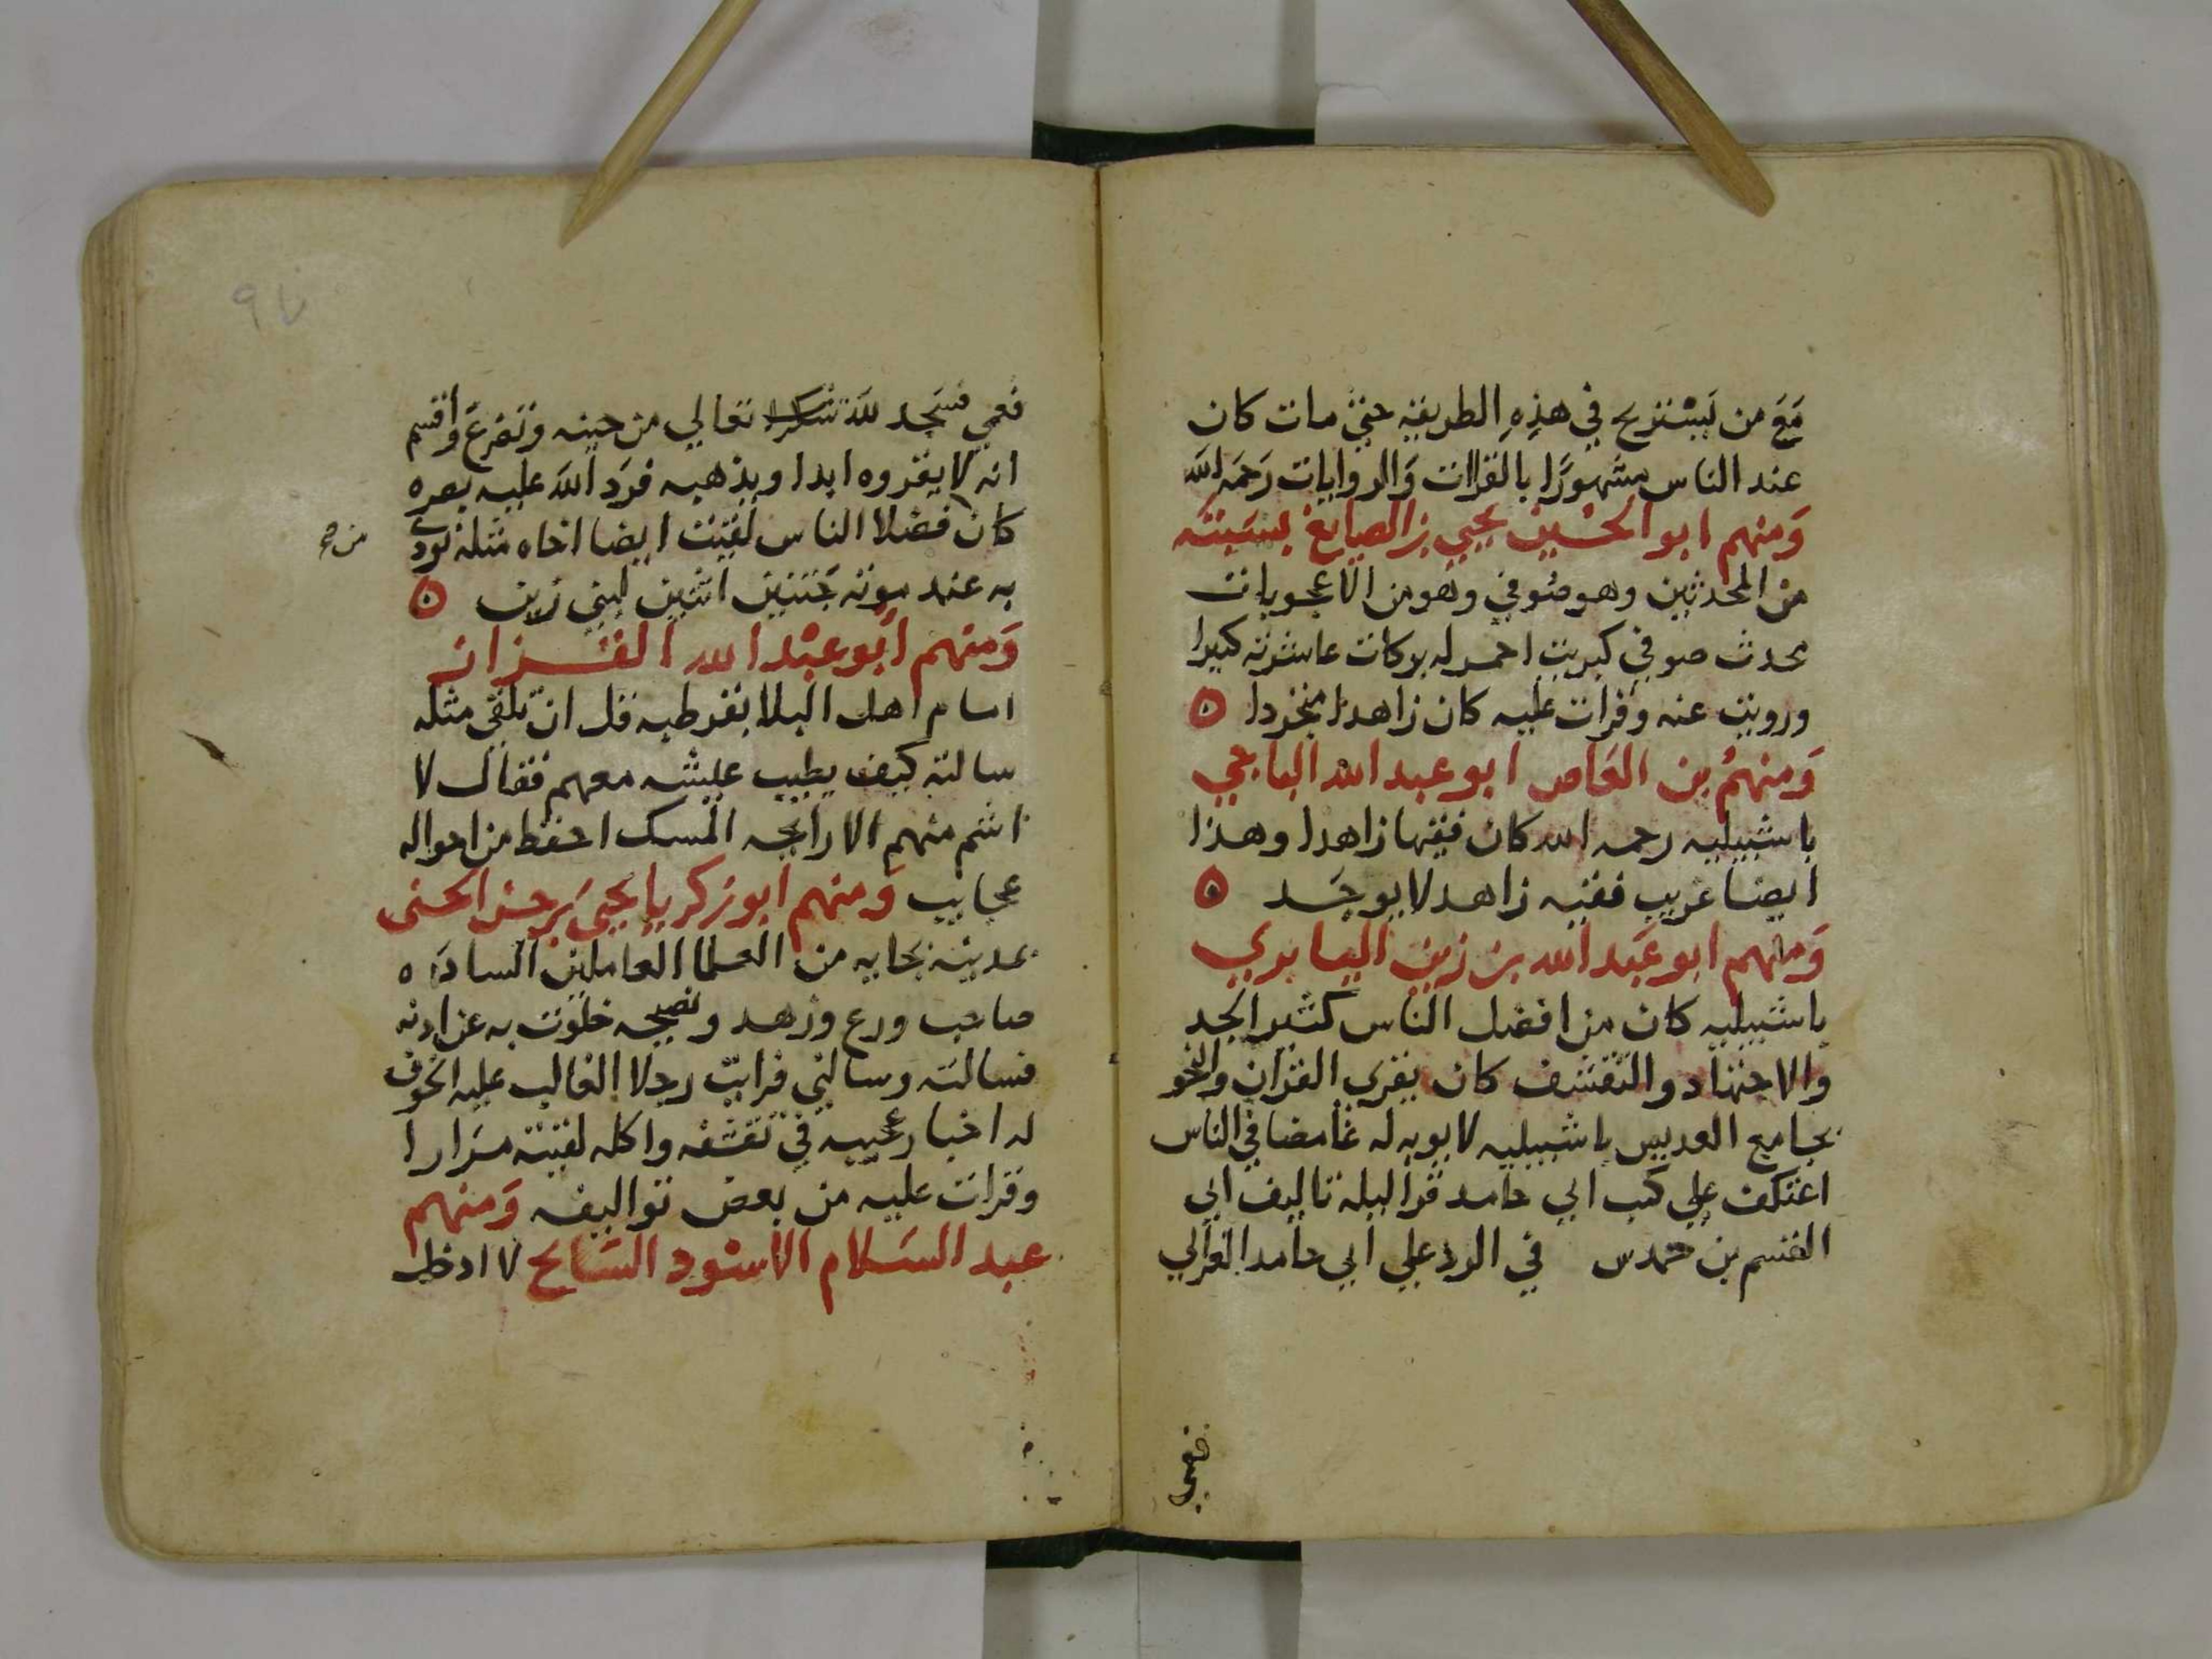 مَعَ من يَسْتريح في هذِهِ الطريقه حتي مات كان
عند الناس مشهورًا بالقراات وَالروايات رَحمَه الله
وَمنهم ابو الحسين يحيي بن الصايغ بسَبته
من المحدثين وهو صُوفي وهو من الاعجوبات
محدث صوفي كبريت احمر له بركات عاشرته كثيرا
ورويت عنه وقرات عليه كان زاهدًا متجردا ۞
وَمنهمُ بن العَاص ابو عبد الله الباجي
باشبيليه رحمه الله كان فقيها زاهدا وهذا
ايضا غريب فقيه زاهد لا يوجَد ۞
وَمنهم ابو عَبد الله بن زين اليابري
باشبيليه كان من افضل الناس كثير الجد
والاجتهاد والتقشف كان يقري القران والنحو
بجامع العديس باشبيليه لا يوبه له غامضا في الناس
اعتكف علي كتب ابي حامد قرا ليله تاليف ابي
القسم بن حمدس في الرد علي ابي حامد الغزالي
فعمي
٩٧
فعمي فسَجد للهَ شكرا تعالي من حينه وتضرعَ وأقسم
انه لا يقروه ابدا ويذهبه فرَد الله عليه بصره
كان فضلا الناس لقيت ايضا اخاه مثله نودي
من صح
به عند موته جَنتين اثنين لبني زين ۞
وَمنهم أبو عبْد الله القـزاز
امام اهل البلا بقرطبه قل ان تلقى مثله
سالته كيف يطيب عيشه معهم فقال لا
اشم منهم الا رايحه المسك احفظ من احواله
عجايب وَمنهم ابو زكريا يحيىَ بن حسن الحسنى
بمدينة بجايه من العلما العاملين السادَه ٥
صاحب ورع وزهد ونصيحه خلوت به عن اذنه
فسالته وسالني فرايت رجلا الغالب عليه الخوف
له اخبار عجيبه في تقشفه واكله لقيته مرَارا
وقرات عليه من بعض تواليفه وَمنهم
عبد السَلام الاسْود السَايح لا ادخل